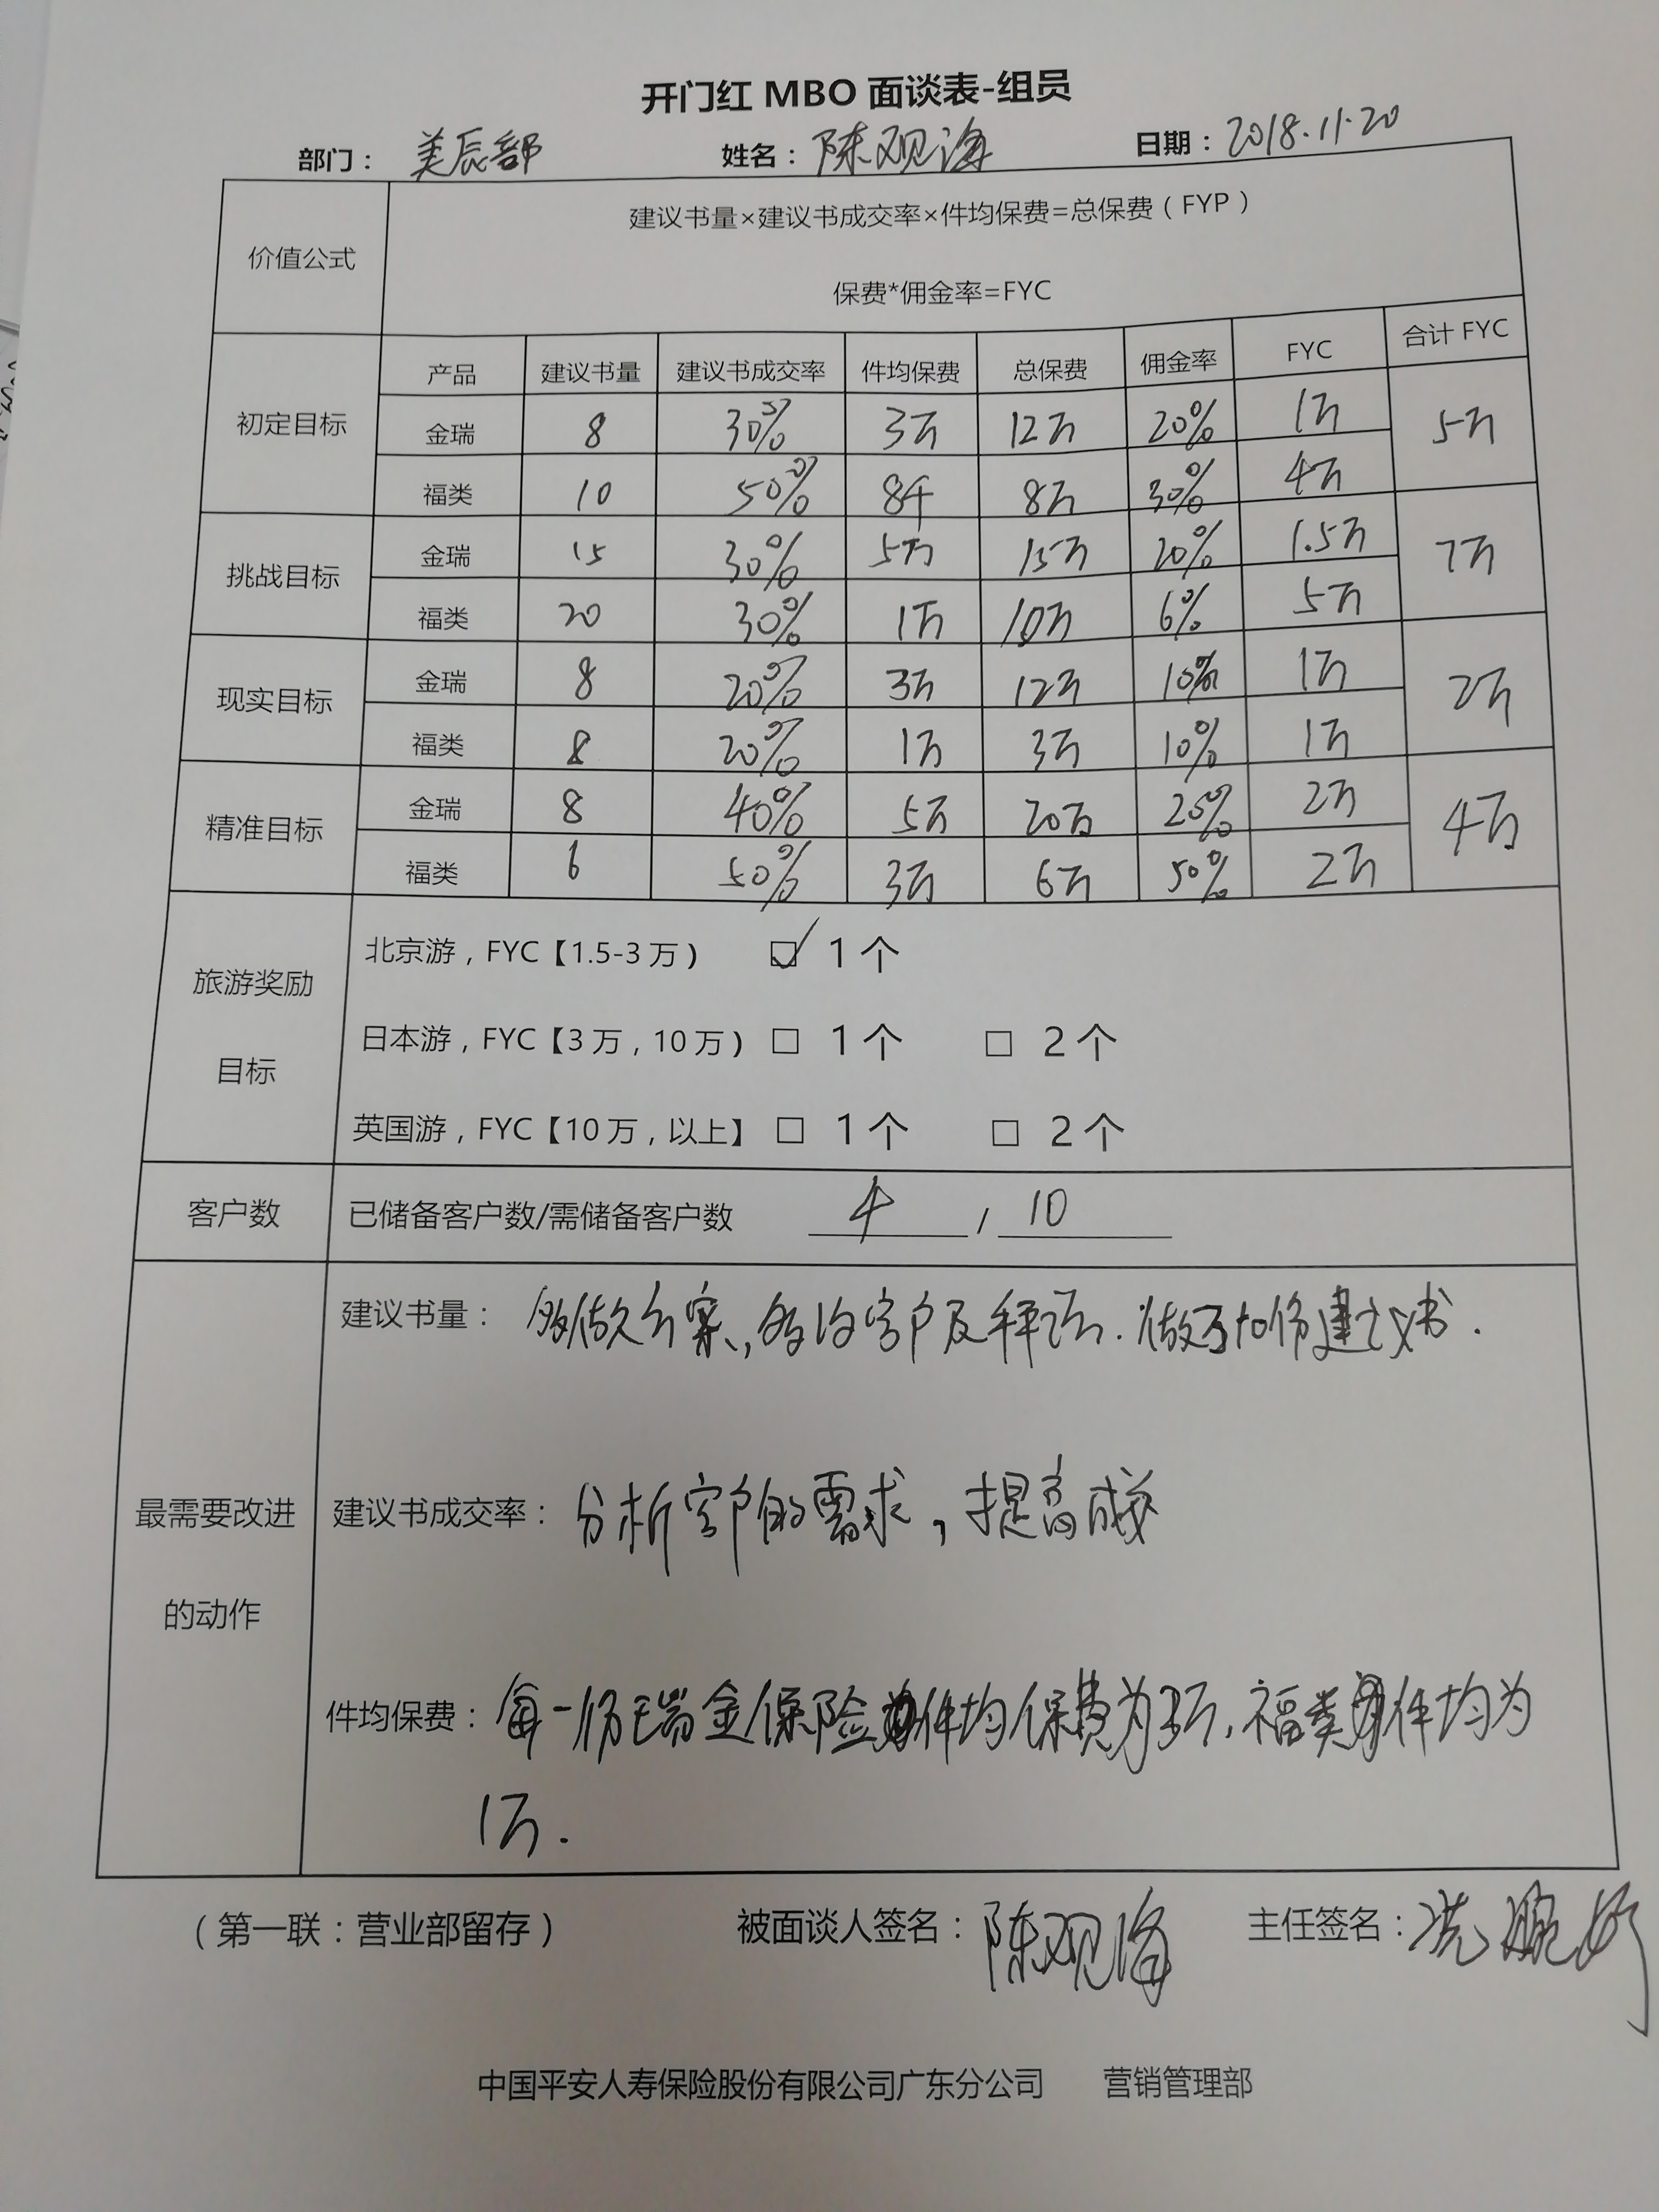 开门红 MBO 面谈表-组员
部门： 美辰部 姓名： 陈观海 日期： 2018.11.20
价值公式
建议书量×建议书成交率×件均保费=总保费（FYP）
保费*佣金率=FYC
产品 建议书量 建议书成交率 件均保费 总保费 佣金率 FYC 合计 FYC
初定目标
金瑞 8 30% 3万 12万 20% 1万 5万
福类 10 50% 8千 8万 30% 4万
挑战目标
金瑞 15 30% 5万 15万 20% 1.5万 7万
福类 20 30% 1万 10万 6% 5万
现实目标
金瑞 8 20% 3万 12万 10% 1万 2万
福类 8 20% 1万 3万 10% 1万
精准目标
金瑞 8 40% 5万 20万 25% 2万 4万
福类 6 50% 3万 6万 50% 2万
旅游奖励
目标
北京游，FYC【1.5-3 万） ☑ 1 个
日本游，FYC【3 万，10 万） □ 1 个 □ 2 个
英国游，FYC【10 万，以上】 □ 1 个 □ 2 个
客户数 已储备客户数/需储备客户数 4 / 10
最需要改进
的动作
建议书量： 多做方案，多约客户及拜访. 做多10份建议书.
建议书成交率： 分析客户的需求，提高成交
件均保费： 每一份瑞金保险件均保费为3万，福类件均为
1万.
（第一联：营业部留存） 被面谈人签名： 陈观海 主任签名： 冼
中国平安人寿保险股份有限公司广东分公司 营销管理部